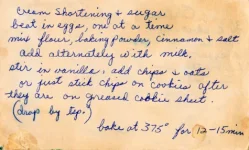 cream shortening & sugar
beat in eggs, one at a time
mix flour, baking powder, cinnamon & salt
add alternately with milk.
stir in vanilla, add chips & oats
or just stick chips on cookies after
they are on greased cookie sheet.
(drop by tsp.)
bake at 375° for 12-15 min